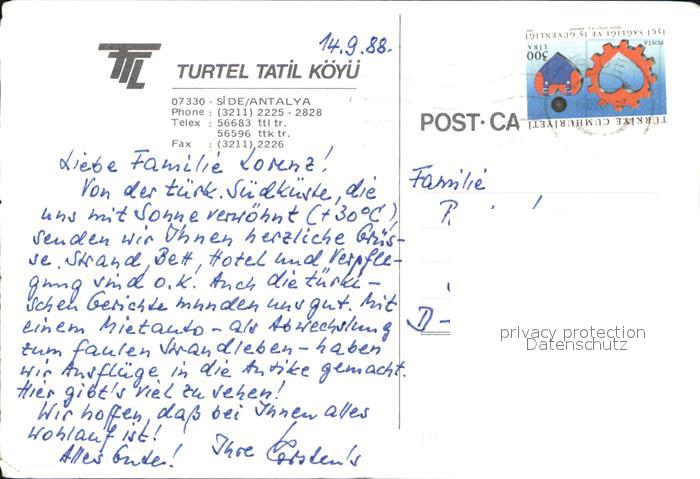 14.9.88.
TTL
TURTEL TATİL KÖYÜ
07330 - SİDE/ANTALYA
Phone : (3211) 2225 - 2828
Telex : 56683 ttl tr.
56596 ttk tr.
Fax : (3211) 2226
Liebe Familie Lorenz!
Von der türk. Südküste, die
uns mit Sonne verwöhnt (+30°C),
senden wir Ihnen herzliche Grüs-
se. Strand, Bett, Hotel und Verpfle-
gung sind o.k. Auch die türki-
schen Gerichte munden uns gut. Mit
einem Mietauto - als Abwechslung
zum faulen Strandleben - haben
wir Ausflüge in die Antike gemacht.
Hier gibt's viel zu sehen!
Wir hoffen, daß bei Ihnen alles
wohlauf ist!
Alles Gute! Ihre Carsten's
İŞÇİ SAĞLIĞI VE İŞ GÜVENLİĞİ
300
LİRA
POSTA
TÜRKİYE CUMHURİYETİ
POST·CA
Familie
D-
privacy protection
Datenschutz